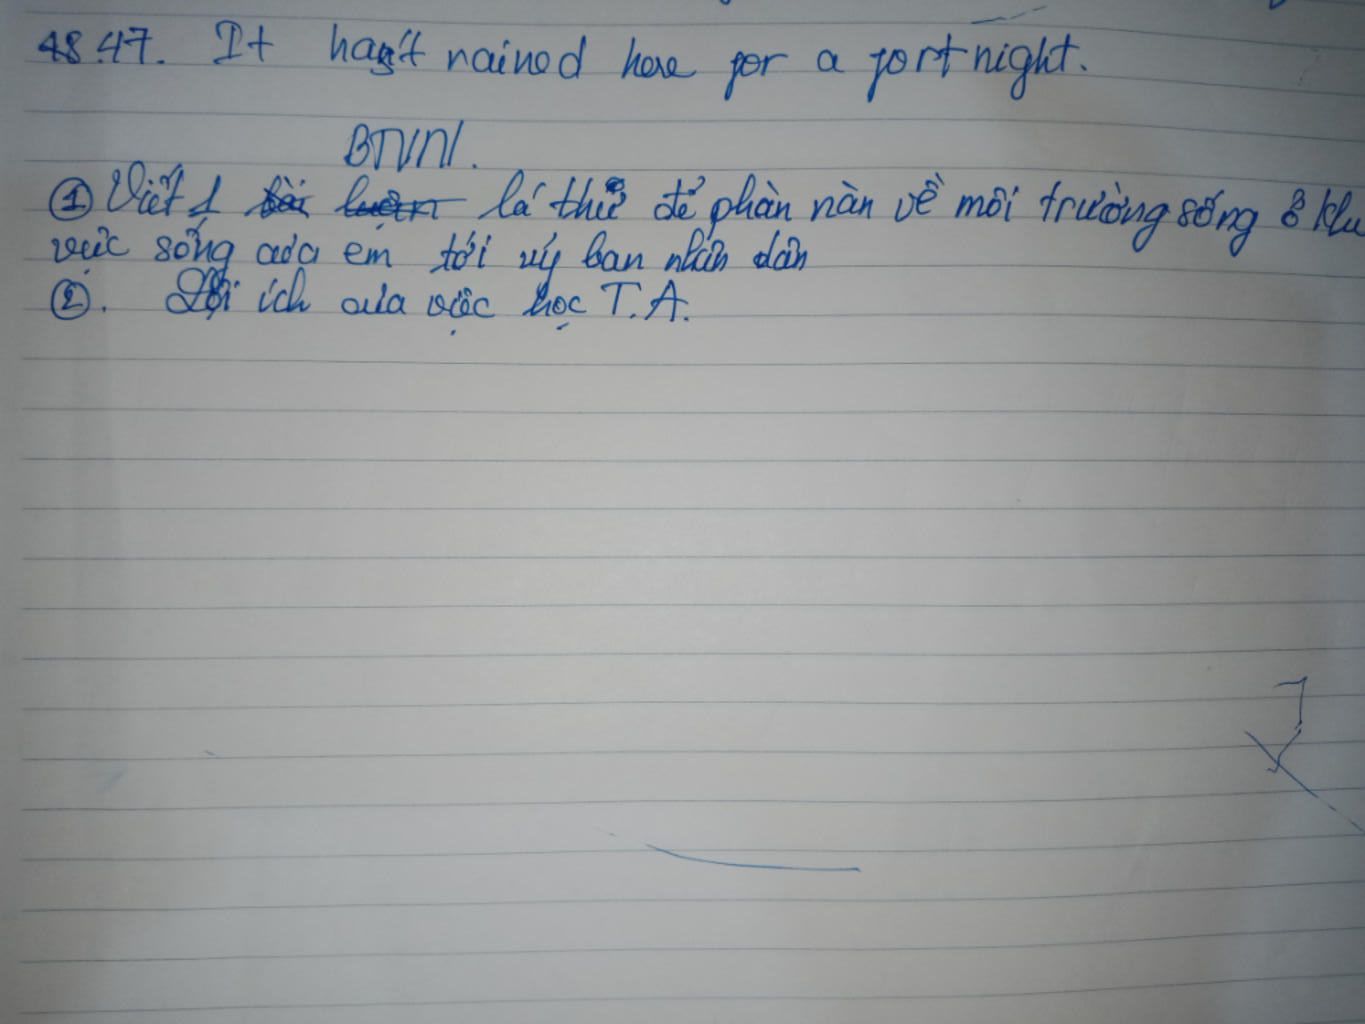 48.47. It hasn't rained here for a fortnight.
BTVN.
① Viết 1 lá thư để phàn nàn về môi trường sống ở khu
vực sống của em tới uỷ ban nhân dân
②. Lợi ích của việc học T.A.